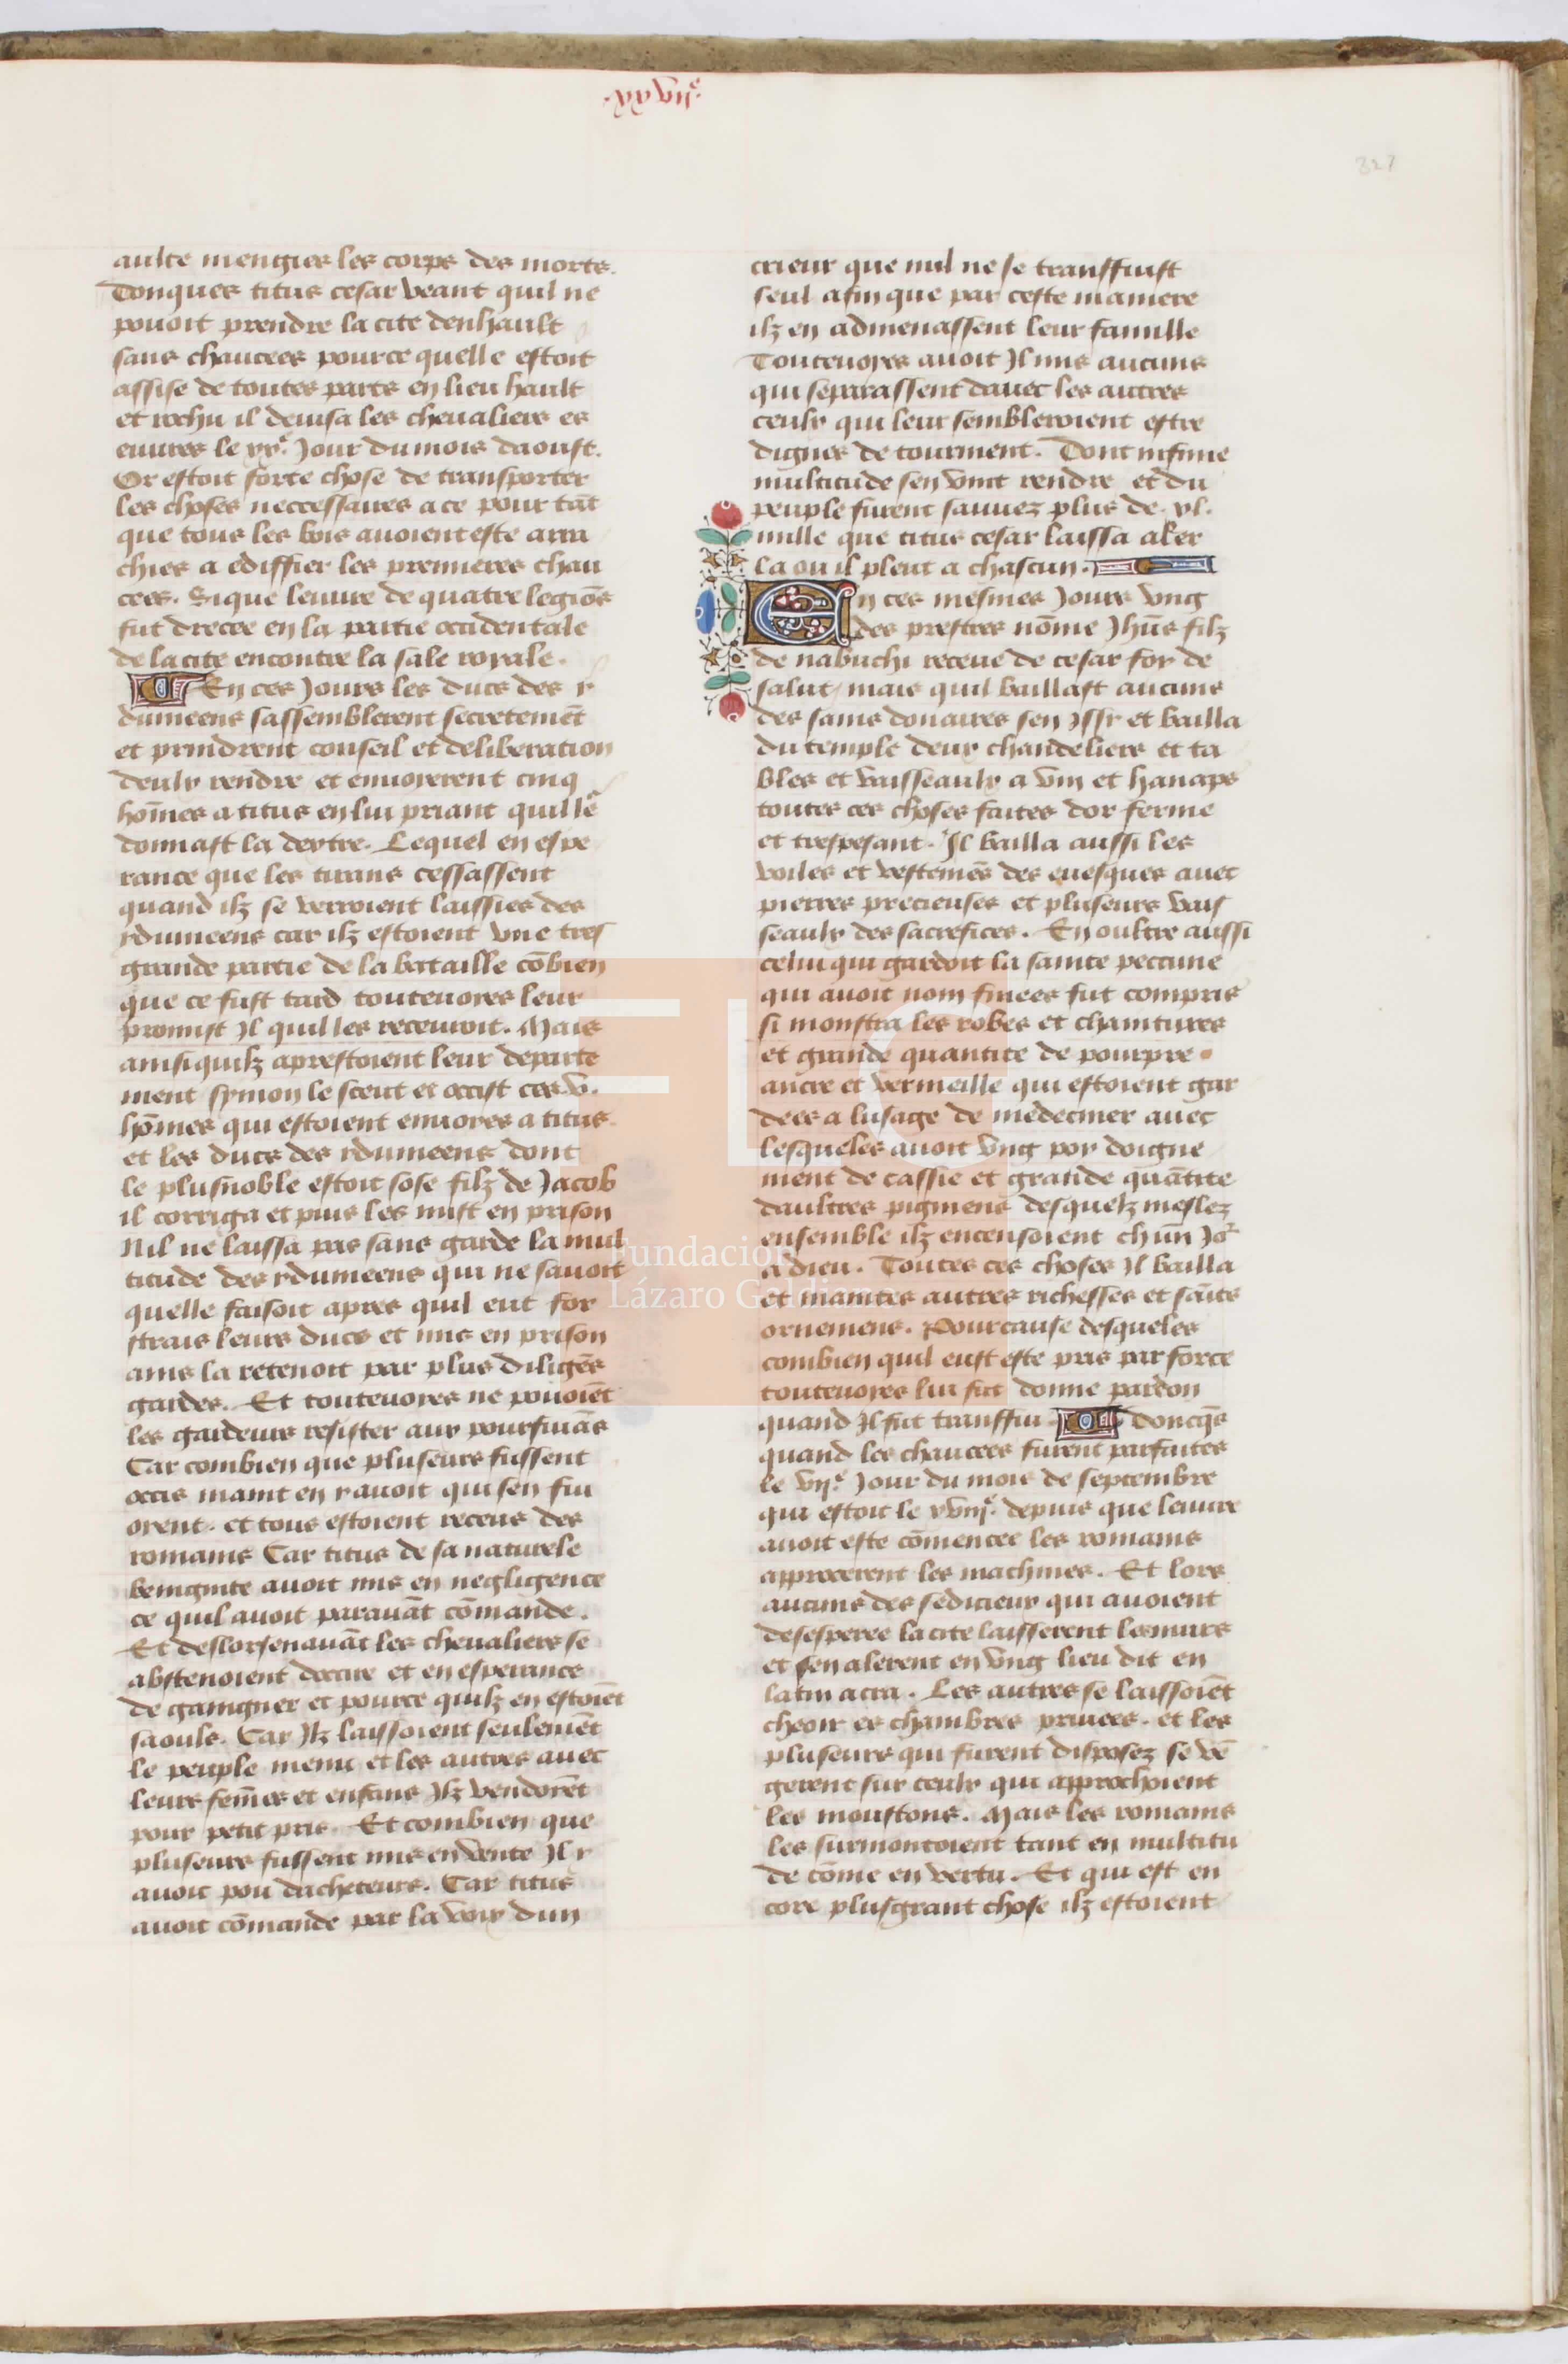 .xxxvii.e
327
aulte mengier les corps des morts.
Donques titus cesar veant quil ne
pouoit prendre la cite denhault
sans chaucees pource quelle estoit
assise de toutes pars en lieu hault
et rochu il deuisa les cheualiers es
euures le xxe. Jour du mois daoust.
Or estoit forte chose de transporter
les choses neccessaires a ce pour tāt
que tous les bois auoient este arra
chies a ediffier les premieres chau
cees. Sique leuure de quatre legiōs
fut drecee en la partie occidentale
de la cite encontre la sale royale.
En ces Jours les ducs des y
dumeens sassemblerent secretemēt
et prindrent conseil et deliberation
deulx rendre et enuoyerent cinq
hōmes a titus en lui priant quil le
donnast la dextre. Lequel en espe
rance que les tirans cessassent
quand ilz se verroient laissies des
ydumeens car ilz estoient vne tres
grande partie de la bataille cōbien
que ce fust tard touteuoyes leur
promist Il quil les receuroit. Mais
ainsi quilz aprestoient leur departe
ment symon le sceut et occist ces .v.
hōmes qui estoient enuoyes a titus.
et les ducs des ydumeens dont
le plusnoble estoit sose filz de Jacob
il corriga et puis les mist en prison
Nil ne laissa pas sans garde la mul
titude des ydumeens qui ne sauoit
quelle faisoit apres quil eut for
strais leurs ducs et mis en prison
ains la retenoit par plus diligēs
gardes. Et touteuoyes ne pouoiēt
les gardeurs resister aux pourfuiās
Car combien que pluseurs fussent
occis maint en y auoit qui sen fui
oyent. et tous estoient receus des
romains Car titus de sa naturele
benignite auoit mis en negligence
ce quil auoit parauāt cōmande.
Et deslorsenauāt les cheualiers se
abstenoient doccire et en esperance
de gaingner et pource quilz en estoiēt
saoulz. Car Ilz laissoient seulemēt
le peuple menu et les autres auec
leurs femēs et enfans Ilz vendoiēt
pour petit pris. Et combien que
pluseurs fussent mis en vente Il y
auoit pou dacheteurs. Car titus
auoit cōmande par la voix dun
crieur que nul ne se transfuist
seul afin que par ceste maniere
ilz en admenassent leur famille
Touteuoyes auoit Il mis aucuns
qui separassent dauec les autres
ceulx qui leur sembleroient estre
dignes de tourment. Dont infinie
multitude sen vint rendre et du
peuple furent sauuez plus de .xl.
mille que titus cesar laissa aler
la ou il pleut a chascun.
En ces mesmes Jours vng
des prestres nōme Jhūs filz
de nabuchi receue de cesar foy de
salut / mais quil baillast aucuns
des sains donaires sen Issy et bailla
du temple deux chandeliers et ta
bles et vaisseaulx a vin et hanaps
toutes ces choses faites dor ferme
et trespesant. Il bailla aussi les
voiles et vestemēs des euesques auec
pierres precieuses et pluseurs vais
seaulx des sacrefices. En oultre aussi
celui qui gardoit la sainte peccune
qui auoit nom finees fut compris
si monstra les robes et chaintures
et grande quantite de pourpre
ancre et vermeille qui estoient gar
dees a lusage de medeciner auec
lesqueles auoit vng poy doigne
ment de cassie et grande quātite
daultres pigmens desquelz meslez
ensemble ilz encensoient chūn Jor
a dieu. Toutes ces choses Il bailla
et maintes autres richesses et saīts
ornemens. Pourcause desqueles
combien quil eust este pris par force
touteuoyes lui fut donne pardon
quand Il fut transfui Doncq̄s
quand les chaucees furent parfaites
le vije. Jour du mois de septembre
qui estoit le xviije. depuis que leuure
auoit este cōmencee les romains
approcerent les machines. Et lors
aucuns des sedicieux qui auoient
desesperee la cite laisserent les murs
et sen alerent en vng lieu dit en
latin acra. Les autres se laissoiēt
cheoir es chambres priuees. et les
pluseurs qui furent disposez se vē
gerent sur ceulx qui approchoient
les moustons. Mais les romains
les surmontoient tant en multitu
de cōme en vertu. Et qui est en
core plusgrant chose ilz estoient
Fundación
Lázaro Galdiano